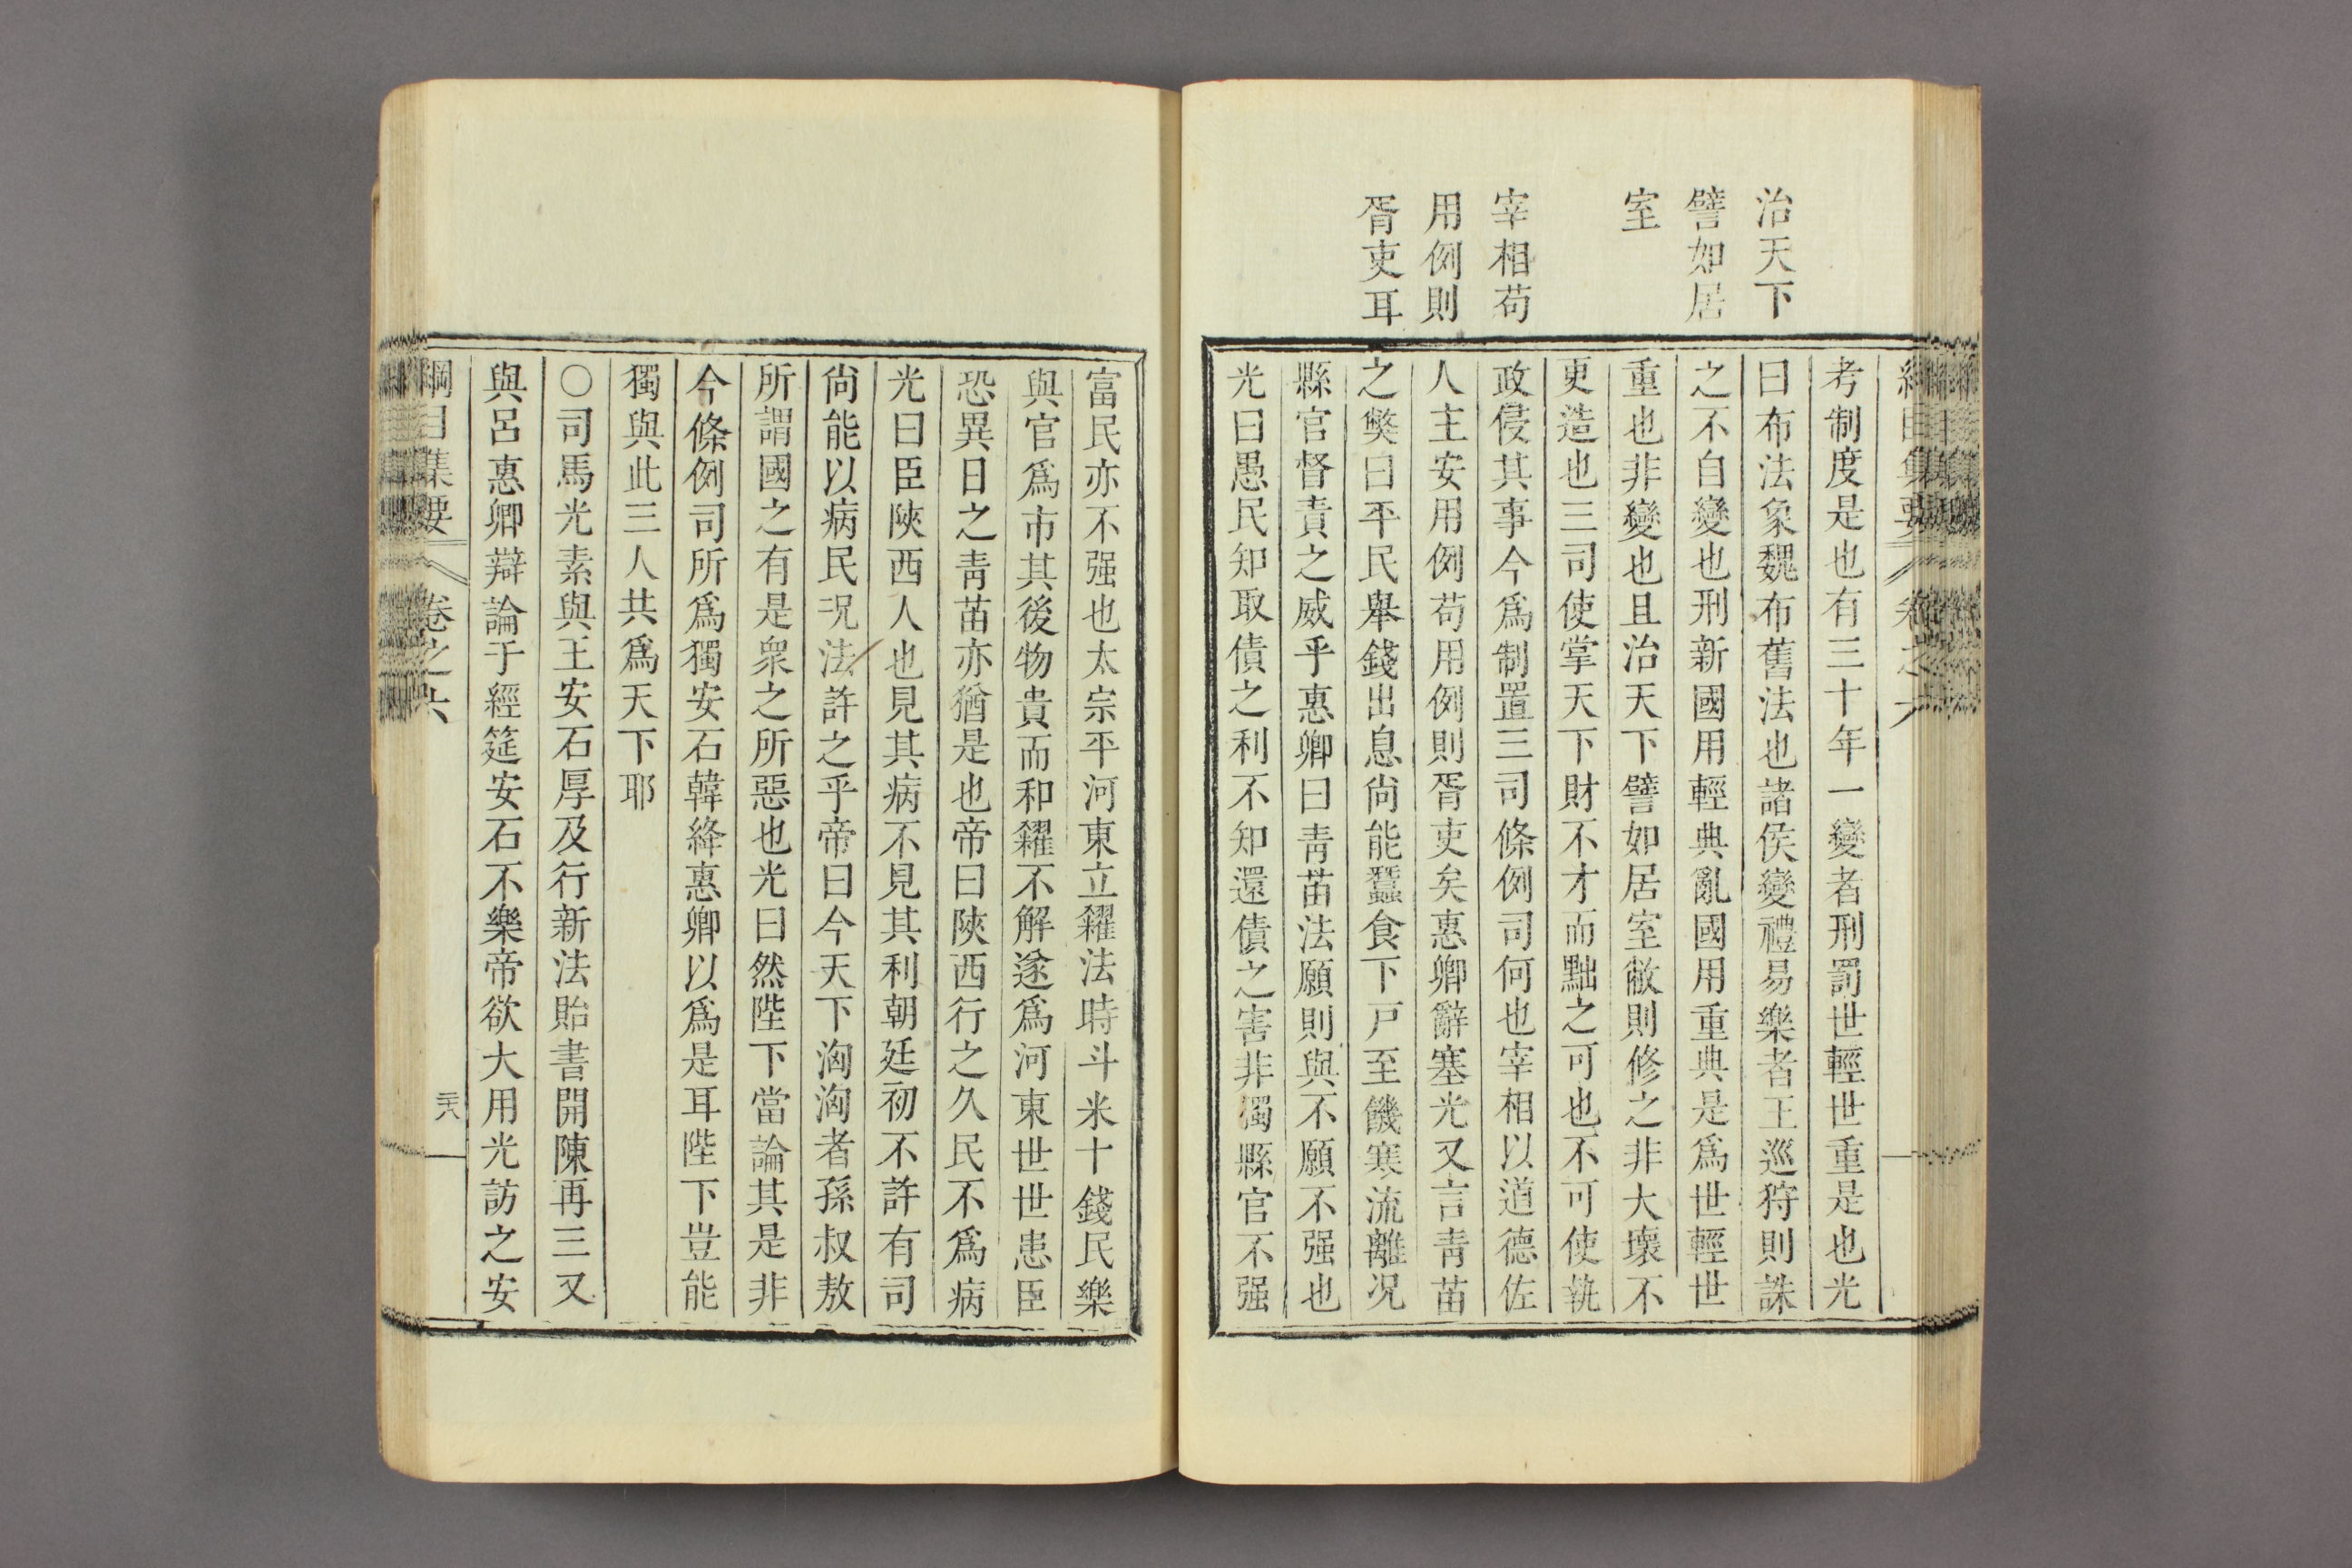 治天下
譬如居
室
宰相苟
用例則
胥吏耳
綱目集要 卷之六
考制度是也有三十年一變者刑罰世輕世重是也光
曰布法象魏布舊法也諸侯變禮易樂者王巡狩則誅
之不自變也刑新國用輕典亂國用重典是爲世輕世
重也非變也且治天下譬如居室敝則修之非大壞不
更造也三司使掌天下財不才而黜之可也不可使執
政侵其事今爲制置三司條例司何也宰相以道德佐
人主安用例苟用例則胥吏矣惠卿辭塞光又言青苗
之獘曰平民舉錢出息尙能蠶食下戶至饑寒流離况
縣官督責之威乎惠卿曰青苗法願則與不願不强也
光曰愚民知取債之利不知還債之害非獨縣官不强
富民亦不强也太宗平河東立糴法時斗米十錢民樂
與官爲市其後物貴而和糴不解遂爲河東世世患臣
恐異日之青苗亦猶是也帝曰陝西行之久民不爲病
光曰臣陝西人也見其病不見其利朝廷初不許有司
尙能以病民况法許之乎帝曰今天下洶洶者孫叔敖
所謂國之有是衆之所惡也光曰然陛下當論其是非
今條例司所爲獨安石韓絳惠卿以爲是耳陛下豈能
獨與此三人共爲天下耶
○司馬光素與王安石厚及行新法貽書開陳再三又
與呂惠卿辯論于經筵安石不樂帝欲大用光訪之安
綱目集要 卷之六 三十八